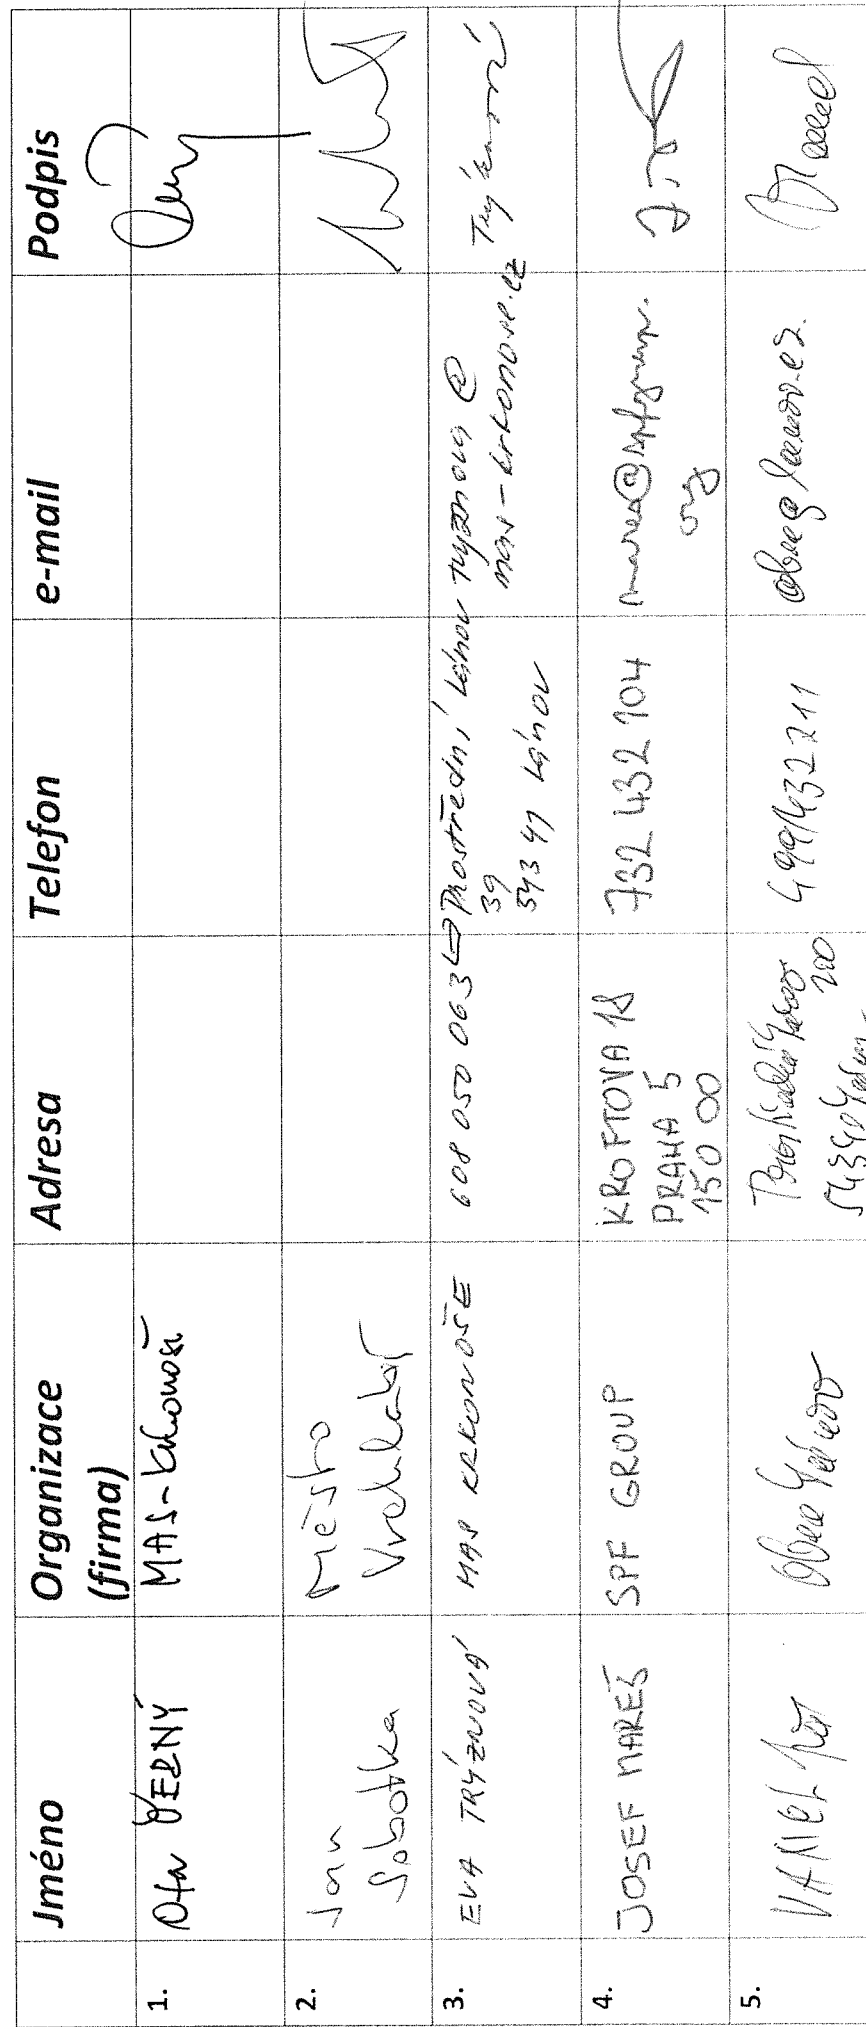 Jméno Organizace (firma) Adresa Telefon e-mail Podpis
1. Ota VERNÝ MAS-Krkonoše
2. Jan Sobotka Město Vrchlabí
3. EVA TRÝZNOVÁ MAS KRKONOŠE 608 050 063 Prostřední Lánov 39 543 41 Lánov tryznova@mas-krkonose.cz Trýznová
4. JOSEF MAREŠ SPF GROUP KROFTOVA 18 PRAHA 5 150 00 732 432 104 mares@spfgroup.org
5. VANĚK Obec Lánov 200 499432211 obec@lanov.cz